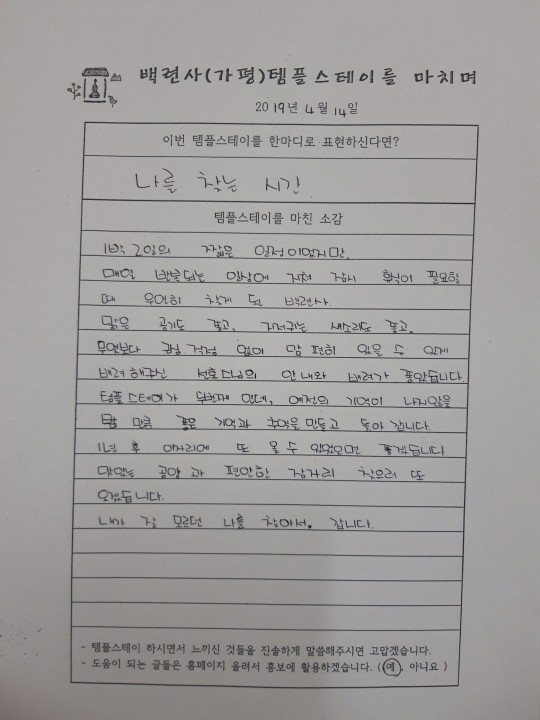 백련사(가평)템플스테이를 마치며
2019년 4월 14일
이번 템플스테이를 한마디로 표현하신다면?
나를 찾는 시간
템플스테이를 마친 소감
1박 2일의 짧은 일정이었지만,
매일 반복되는 일상에 지쳐 잠시 휴식이 필요할
때 우연히 찾게 된 백련사.
맑은 공기도 좋고, 지저귀는 새소리도 좋고,
무엇보다 걱정 없이 맘 편히 있을 수 있게
배려해주신 선호스님의 안내와 배려가 좋았습니다.
템플스테이가 두번째 인데, 예전의 기억이 나지않을
만큼 좋은 기억과 추억을 만들고 돌아 갑니다.
1년 후 이자리에 또 올 수 있었으면 좋겠습니다.
맛있는 공양과 편안한 잠자리 찾으러 또
오겠습니다.
내가 잘 모르던 나를 찾아서. 갑니다.
- 템플스테이 하시면서 느끼신 것들을 진솔하게 말씀해주시면 고맙겠습니다.
- 도움이 되는 글들은 홈페이지 올려서 홍보에 활용하겠습니다. ( 예, 아니요 )